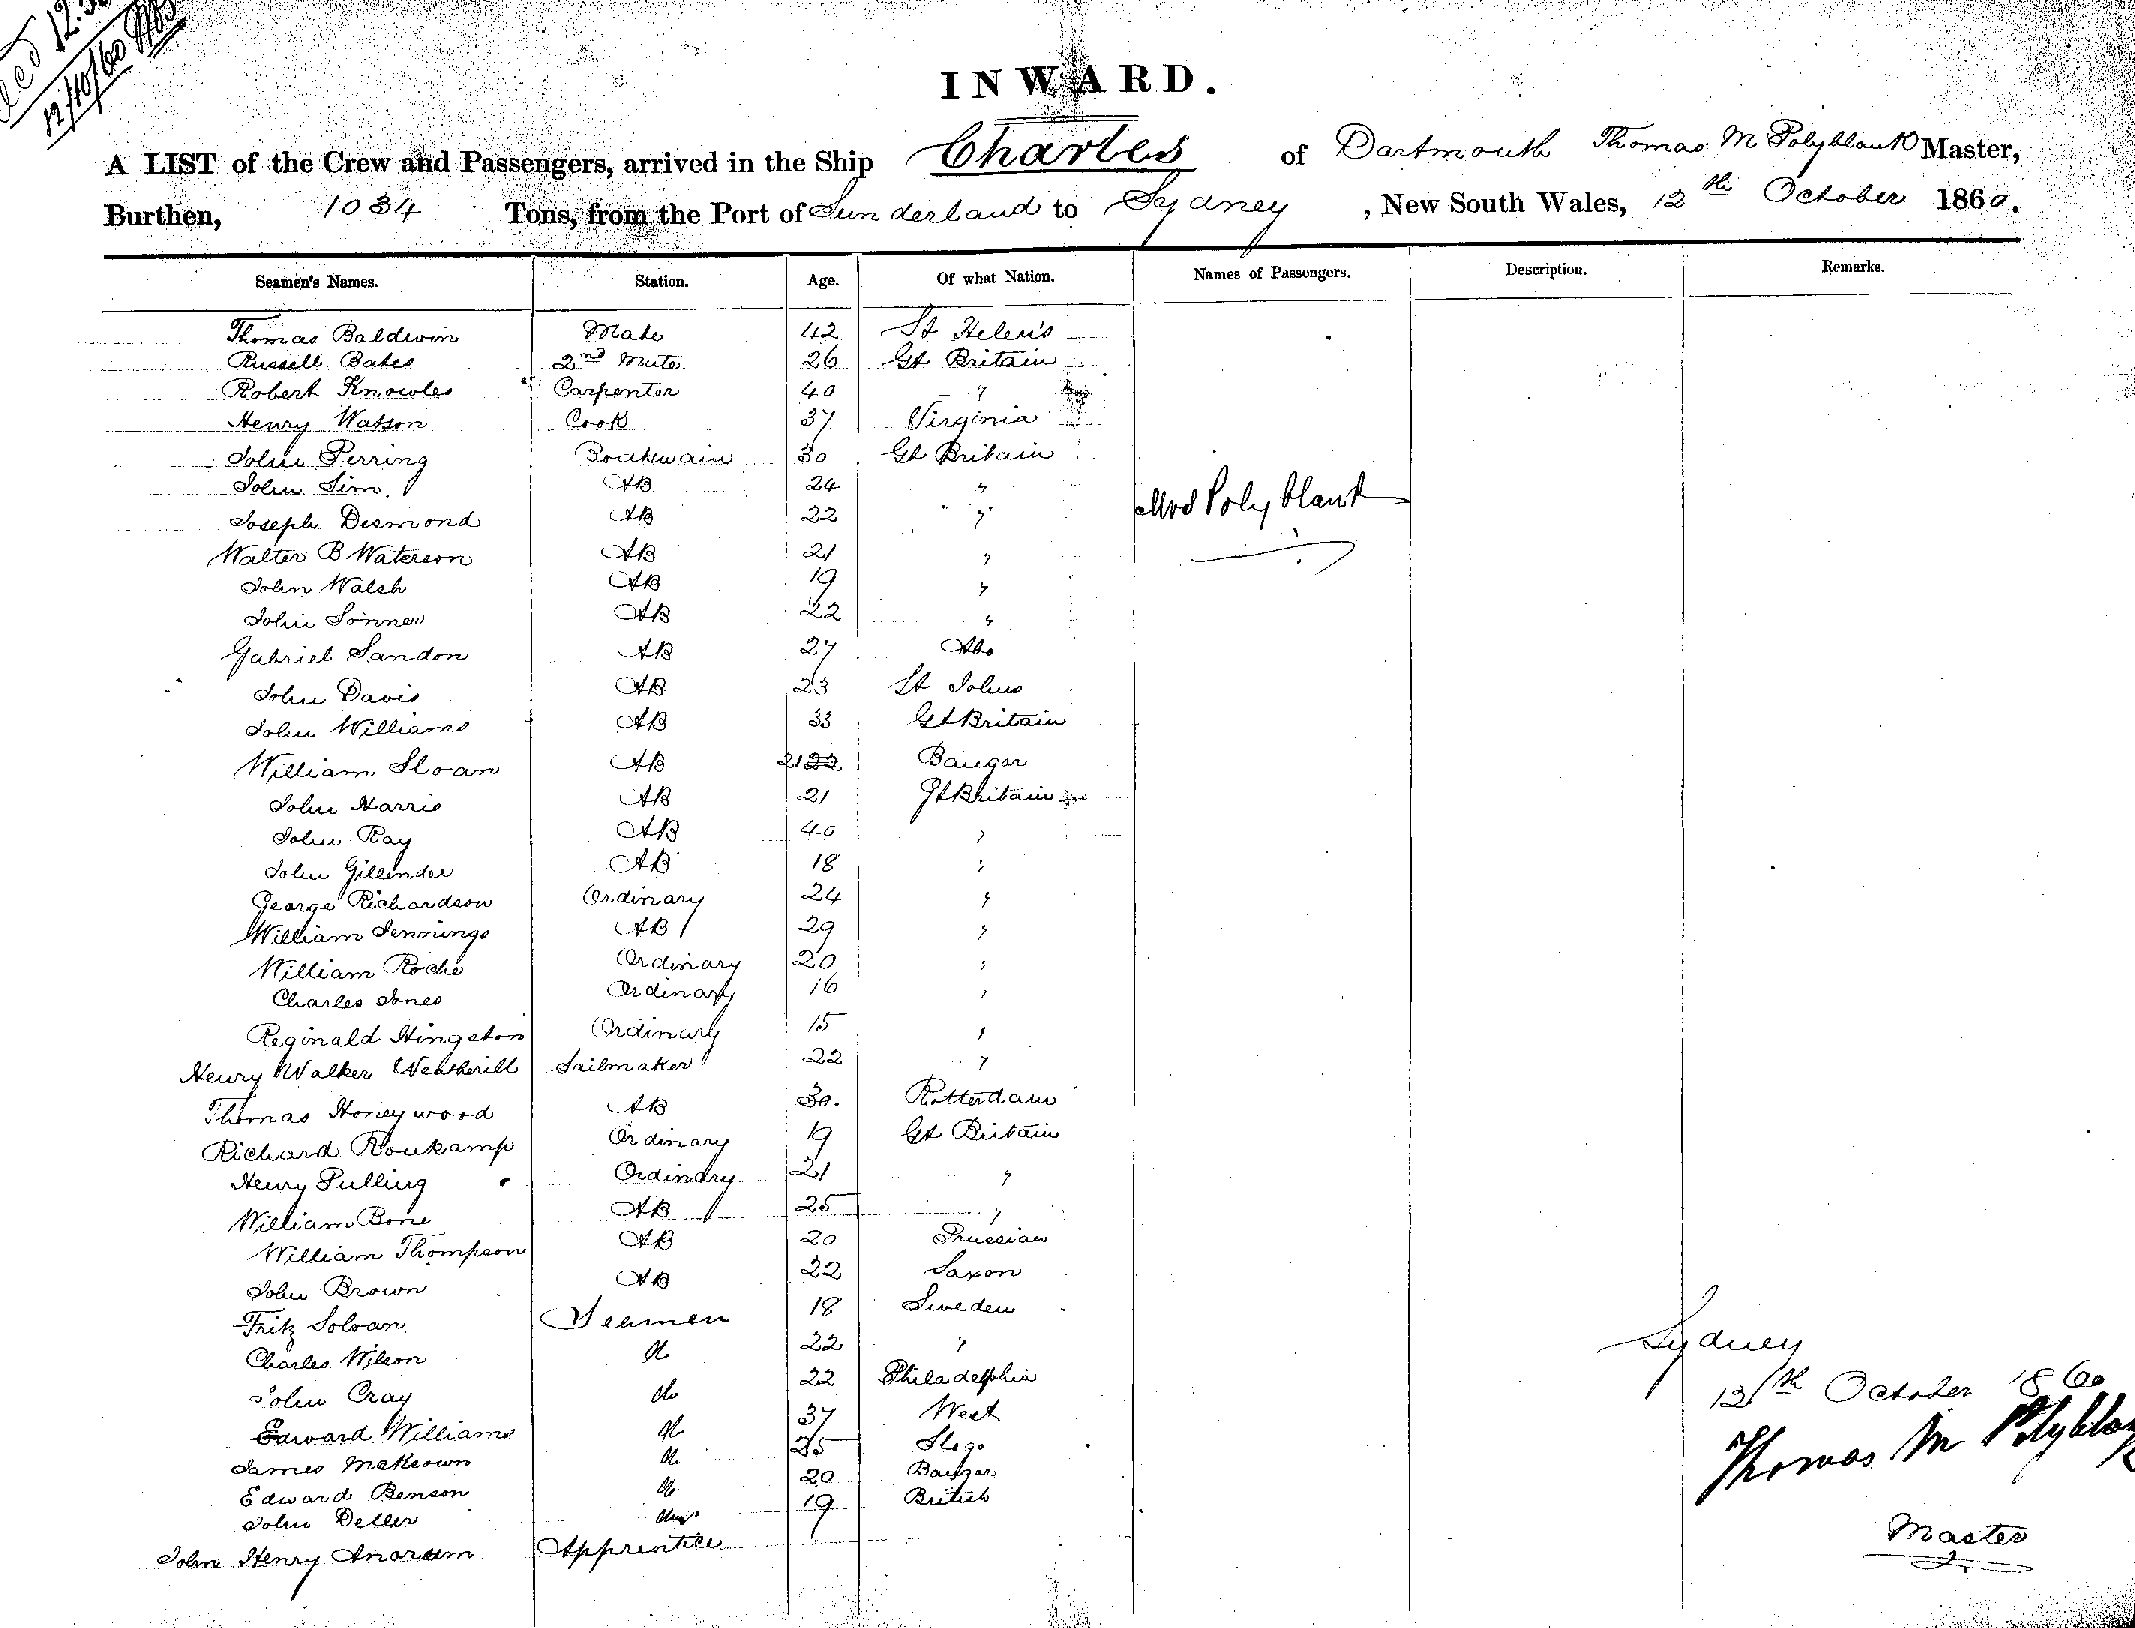 12/10/60
INWARD.
A LIST of the Crew and Passengers, arrived in the Ship Charles of Dartmouth Thomas M Polyblank Master,
Burthen, 1034 Tons, from the Port of Sunderland to Sydney, New South Wales, 12th October 1860.
Seamen's Names. Station. Age. Of what Nation. Names of Passengers. Description. Remarks.
Thomas Baldwin Mate 42 St Helen's
Russell Bates 2nd Mate 26 Gt Britain
Robert Knowles Carpenter 40 "
Henry Watson Cook 37 Virginia
John Perring Boatswain 30 Gt Britain
John Sim AB 24 "
Mrs Polyblank
Joseph Desmond AB 22 "
Walter B Waterson AB 21 "
John Walsh AB 19 "
John AB 22 "
Gabriel Sandon AB 27 Abo
John Davis AB 23 St Johns
John Williams AB 33 Gt Britain
William Sloan AB 21 22 Bangor
John Harris AB 21 Gt Britain
John Ray AB 40 "
John Gillender AB 18 "
George Richardson Ordinary 24 "
William Jennings AB 29 "
William Roche Ordinary 20 "
Charles Jones Ordinary 16 "
Reginald Hingston Ordinary 15 "
Henry Walker Weatherill Sailmaker 22 "
Thomas Honeywood AB 30. Rotterdam
Richard Roukamp Ordinary 19 Gt Britain
Henry Pulling Ordinary 21 "
William Bone AB 25 "
William Thompson AB 20 Prussian
John Brown AB 22 Saxon
Fritz Soloan Seamen 18 Sweden
Charles Wilson do 22 "
John Cray do 22 Philadelphia
Edward Williams do 37 West
James McKeown do 25 Sligo
Edward Benson do 20 Bangor
John Deller 19 British
John Henry Apprentice
Sydney
12th October 1860
Thomas M Polyblank
Master